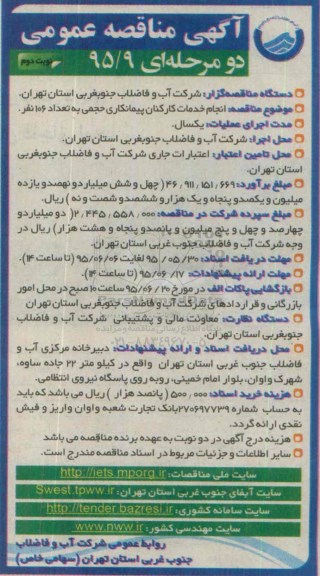 آگهی مناقصه عمومی
دو مرحله‌ای ۹۵/۹
نوبت دوم
دستگاه مناقصه‌گزار: شرکت آب و فاضلاب جنوبغربی استان تهران.
موضوع مناقصه: انجام خدمات کارکنان پیمانکاری حجمی به تعداد ۱۰۶ نفر.
مدت اجرای عملیات: یکسال.
محل اجرا: شرکت آب و فاضلاب جنوبغربی استان تهران.
محل تامین اعتبار: اعتبارات جاری شرکت آب و فاضلاب جنوبغربی
استان تهران.
مبلغ برآورد: ۴۶,۹۱۱,۱۵۱,۶۶۹ (چهل و شش میلیارد و نهصد و یازده
میلیون و یکصد و پنجاه و یک هزار و ششصد و شصت و نه) ریال.
مبلغ سپرده شرکت در مناقصه: ۲,۴۴۵,۵۵۸,۰۰۰ (دو میلیارد و
چهارصد و چهل و پنج میلیون و پانصد و پنجاه و هشت هزار) ریال در
وجه شرکت آب و فاضلاب جنوب غربی استان تهران.
مهلت دریافت اسناد: ۹۵/۰۵/۳۰ لغایت ۹۵/۰۶/۰۶ (تا ساعت ۱۴).
مهلت ارائه پیشنهادات: ۹۵/۰۶/۱۷ (تا ساعت ۱۴).
بازگشایی پاکات الف در مورخ ۹۵/۰۶/۲۰ ساعت ۱۰ صبح در محل امور
بازرگانی و قراردادهای شرکت آب و فاضلاب جنوبغربی استان تهران
دستگاه نظارت: معاونت مالی و پشتیبانی شرکت آب و فاضلاب
جنوبغربی استان تهران.
محل دریافت اسناد و ارائه پیشنهادات: دبیرخانه مرکزی آب و
فاضلاب جنوب غربی استان تهران واقع در کیلو متر ۲۲ جاده ساوه،
شهرک واوان، بلوار امام خمینی، روبه روی پاسگاه نیروی انتظامی.
هزینه خرید اسناد: ۵۰۰,۰۰۰ (پانصد هزار) ریال می باشد که باید
به حساب شماره ۲۷۰۶۹۷۷۳۹ بانک تجارت شعبه واوان واریز و فیش
نقدی ارائه گردد.
هزینه درج آگهی در دو نوبت به عهده برنده مناقصه می باشد
سایر اطلاعات و جزئیات مربوط در اسناد مناقصه مندرج است.
سایت ملی مناقصات: http://iets.mporg.ir
سایت آبفای جنوب غربی استان تهران: Swest.tpww.ir
سایت سامانه کشوری: http://tender.bazresi.ir
سایت مهندسی کشور: www.nww.ir
روابط عمومی شرکت آب و فاضلاب
جنوب غربی استان تهران (سهامی خاص)